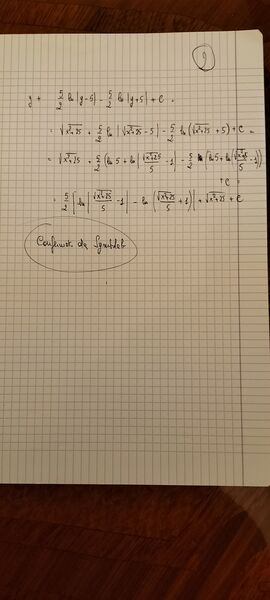 9
y + 5/2 ln |y-5| - 5/2 ln |y+5| + C .
= √(x²+25) + 5/2 ln |√(x²+25) - 5| - 5/2 ln (√(x²+25) + 5) + C .
= √(x²+25) + 5/2 (ln 5 + ln |√(x²+25)/5 - 1|) - 5/2 (ln 5 + ln |√(x²+25)/5 - 1|)
+ C .
= 5/2 [ln |√(x²+25)/5 - 1| - ln (√(x²+25)/5 + 1)] + √(x²+25) + C
de Symbolab